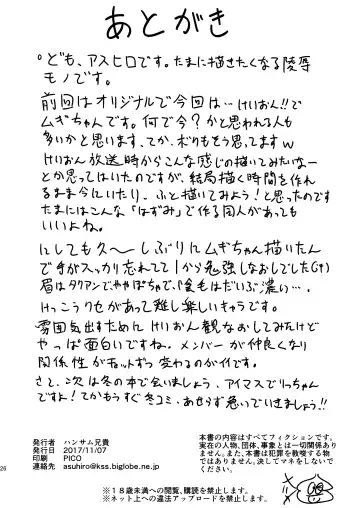 あとがき
ども、アスヒロです。たまに描きたくなる陵辱
モノです。
前回はオリジナルで今回は…けいおん!!で
ムギちゃんです。何で今?かと思われる人も
多いかと思います、てか、ボクもそう思ってますw
けいおん放送時からこんな感じの描いてみたいなー
とか思ってはいたのですが、結局描く時間を作れ
るまま今にいたり、ふと描いてみよう!と思ったのです
たまにはこんな「はずみ」で作る同人があっても
いいよね。
にしても久〜しぶりにムギちゃん描いたん
で手がスッカリ忘れてて1から勉強しなおしでした
眉はタクアンでややぽちゃで、
けっこうクセがあって難し楽しいキャラです。
雰囲気出すためにけいおん観なおしてみたけど
やっぱ面白いですね。メンバーが仲良くなり
関係性がちょっとずつ変わるのがイイです。
さて、次は冬の本で会いましょう、アイマスでりっちゃん
ですよ!てかもうすぐ冬コミ、あせらず急いでいきましょう!!
発行者 ハンサム兄貴
発行日 2017/11/07
印刷 PICO
連絡先 asuhiro@kss.biglobe.ne.jp
本書の内容はすべてフィクションです。
実在の人物、団体、事象とは一切関係あり
ません。また、本書は犯罪を教唆する物で
はありません。決してマネをしないで
ください。
26
※18歳未満への閲覧、購読を禁止します。
※ネット上への違法アップロードを禁止します。